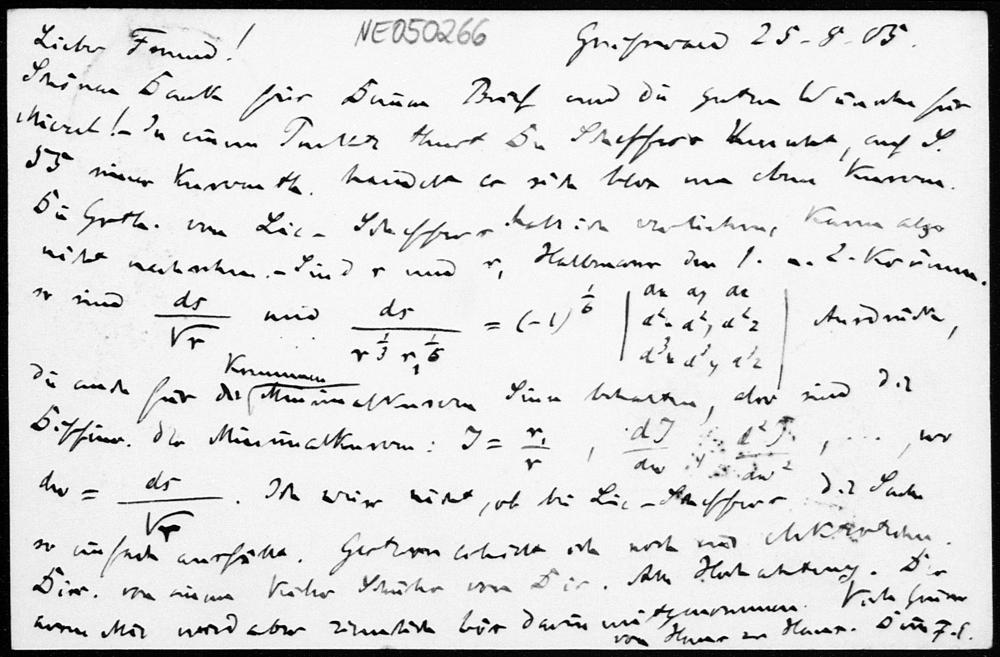 Lieber Freund! NE050266 Greifswald 25-8-05.
Schönen Dank für Deinen Brief und die guten Wünsche für
! – In einem Punkte thust Du Scheffers Unrecht, auf S.
55 seiner Kurventh. handelt es sich blos um ebene Kurven.
Die Geoth. von Lie-Scheffers hab ich verliehen, kann also
nicht nachsehen. – Sind r und r₁ Halbmesser der 1. u. 2. Krümm.
so sind ds/√r und ds/(r^{1/3} r₁^{1/6}) = (-1)^{1/6} |dx dy dz; d²x d²y d²z; d³x d³y d³z| Ausdrücke,
die auch für die krummen Minimalkurven Sinn behalten, also sind die
Differ. der Minimalkurven: J = r₁/r, dJ/dw, d²J/dw², ..., wo
dw = ds/√r. Ich weiss nicht, ob bei Lie-Scheffers die Sache
so einfach ausfällt. Gestern erhielt ich noch
Diss. von einem Kieler Schüler von Dir. Alle Hochachtung. Der
wird aber ziemlich bös darin mitgenommen. Viele Grüsse
von Haus zu Haus. Dein F. E.